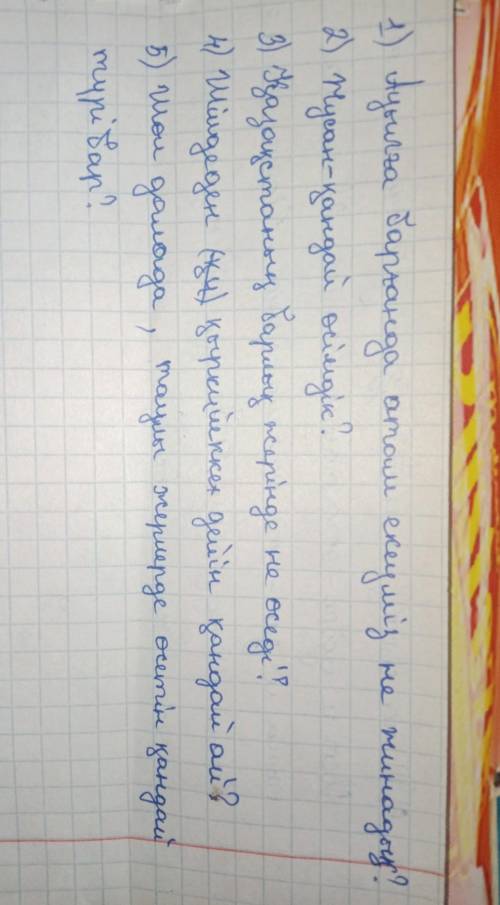 1) Ауылға барғанда атам екеуміз не жинадық?
2) Жусан-қандай өсімдік?
3) Қазақстаның барлық жерінде не өседі?
4) Шілдеден қыркүйекке дейін қандай ай?
5) Шөл далада, таулы жерлерде өсетін қандай
түрі бар?